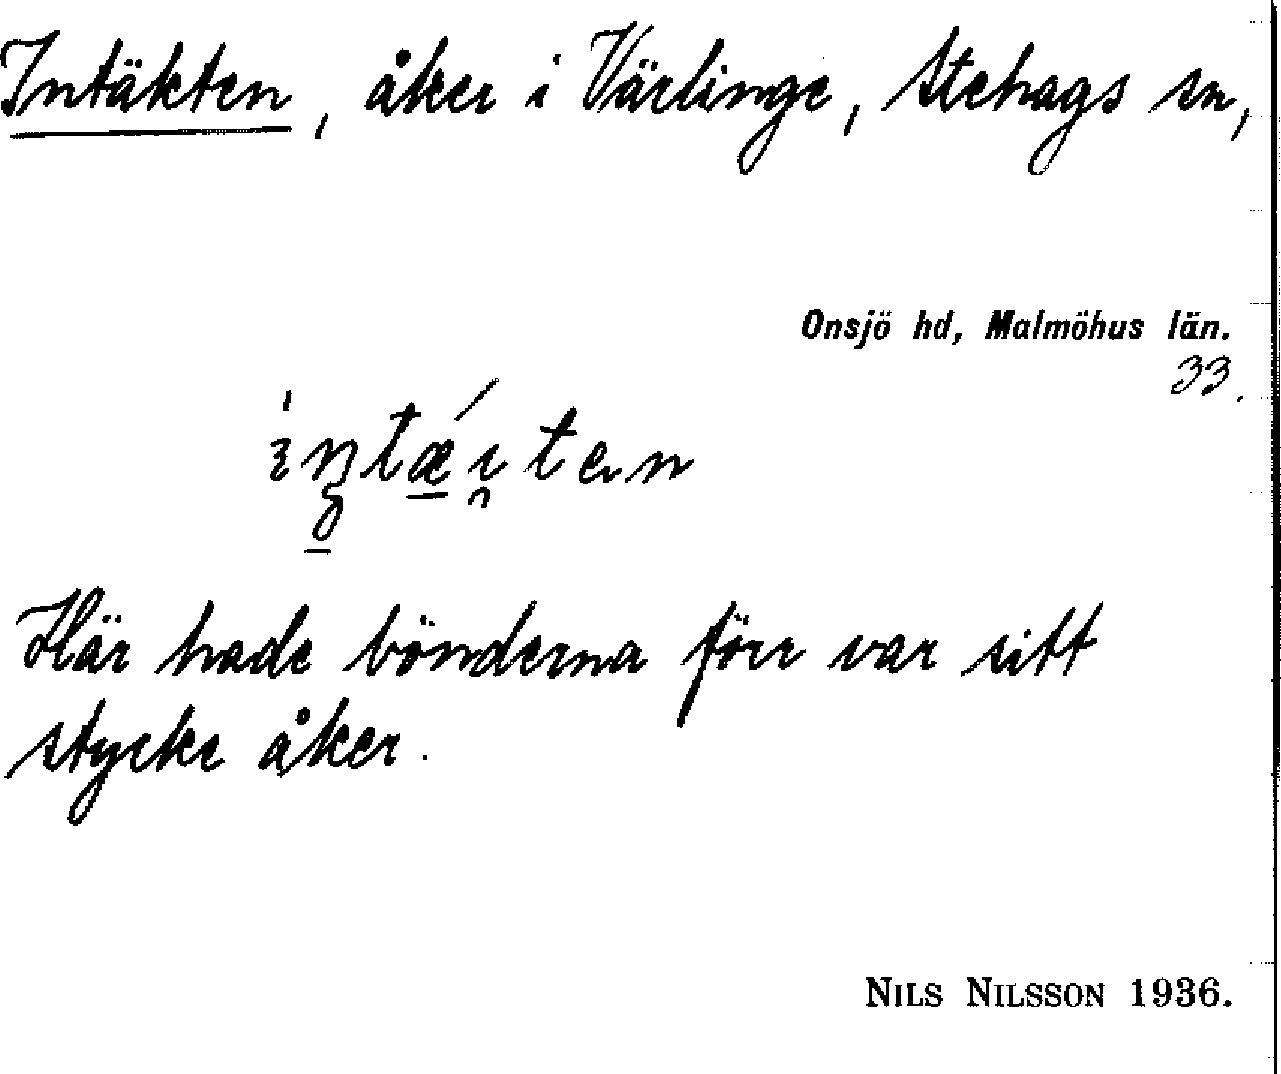 Intäkten, åker i Värlinge, Stehags sn,
Onsjö hd, Malmöhus län.
33.
Här hade bönderna förr var sitt
stycke åker.
NILS NILSSON 1936.